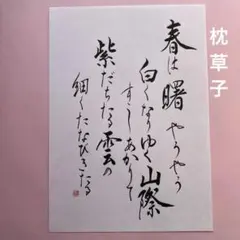 枕草子
春は曙 やうやう
白くなりゆく山際
すこしあかりて
紫だちたる雲の
細くたなびきたる